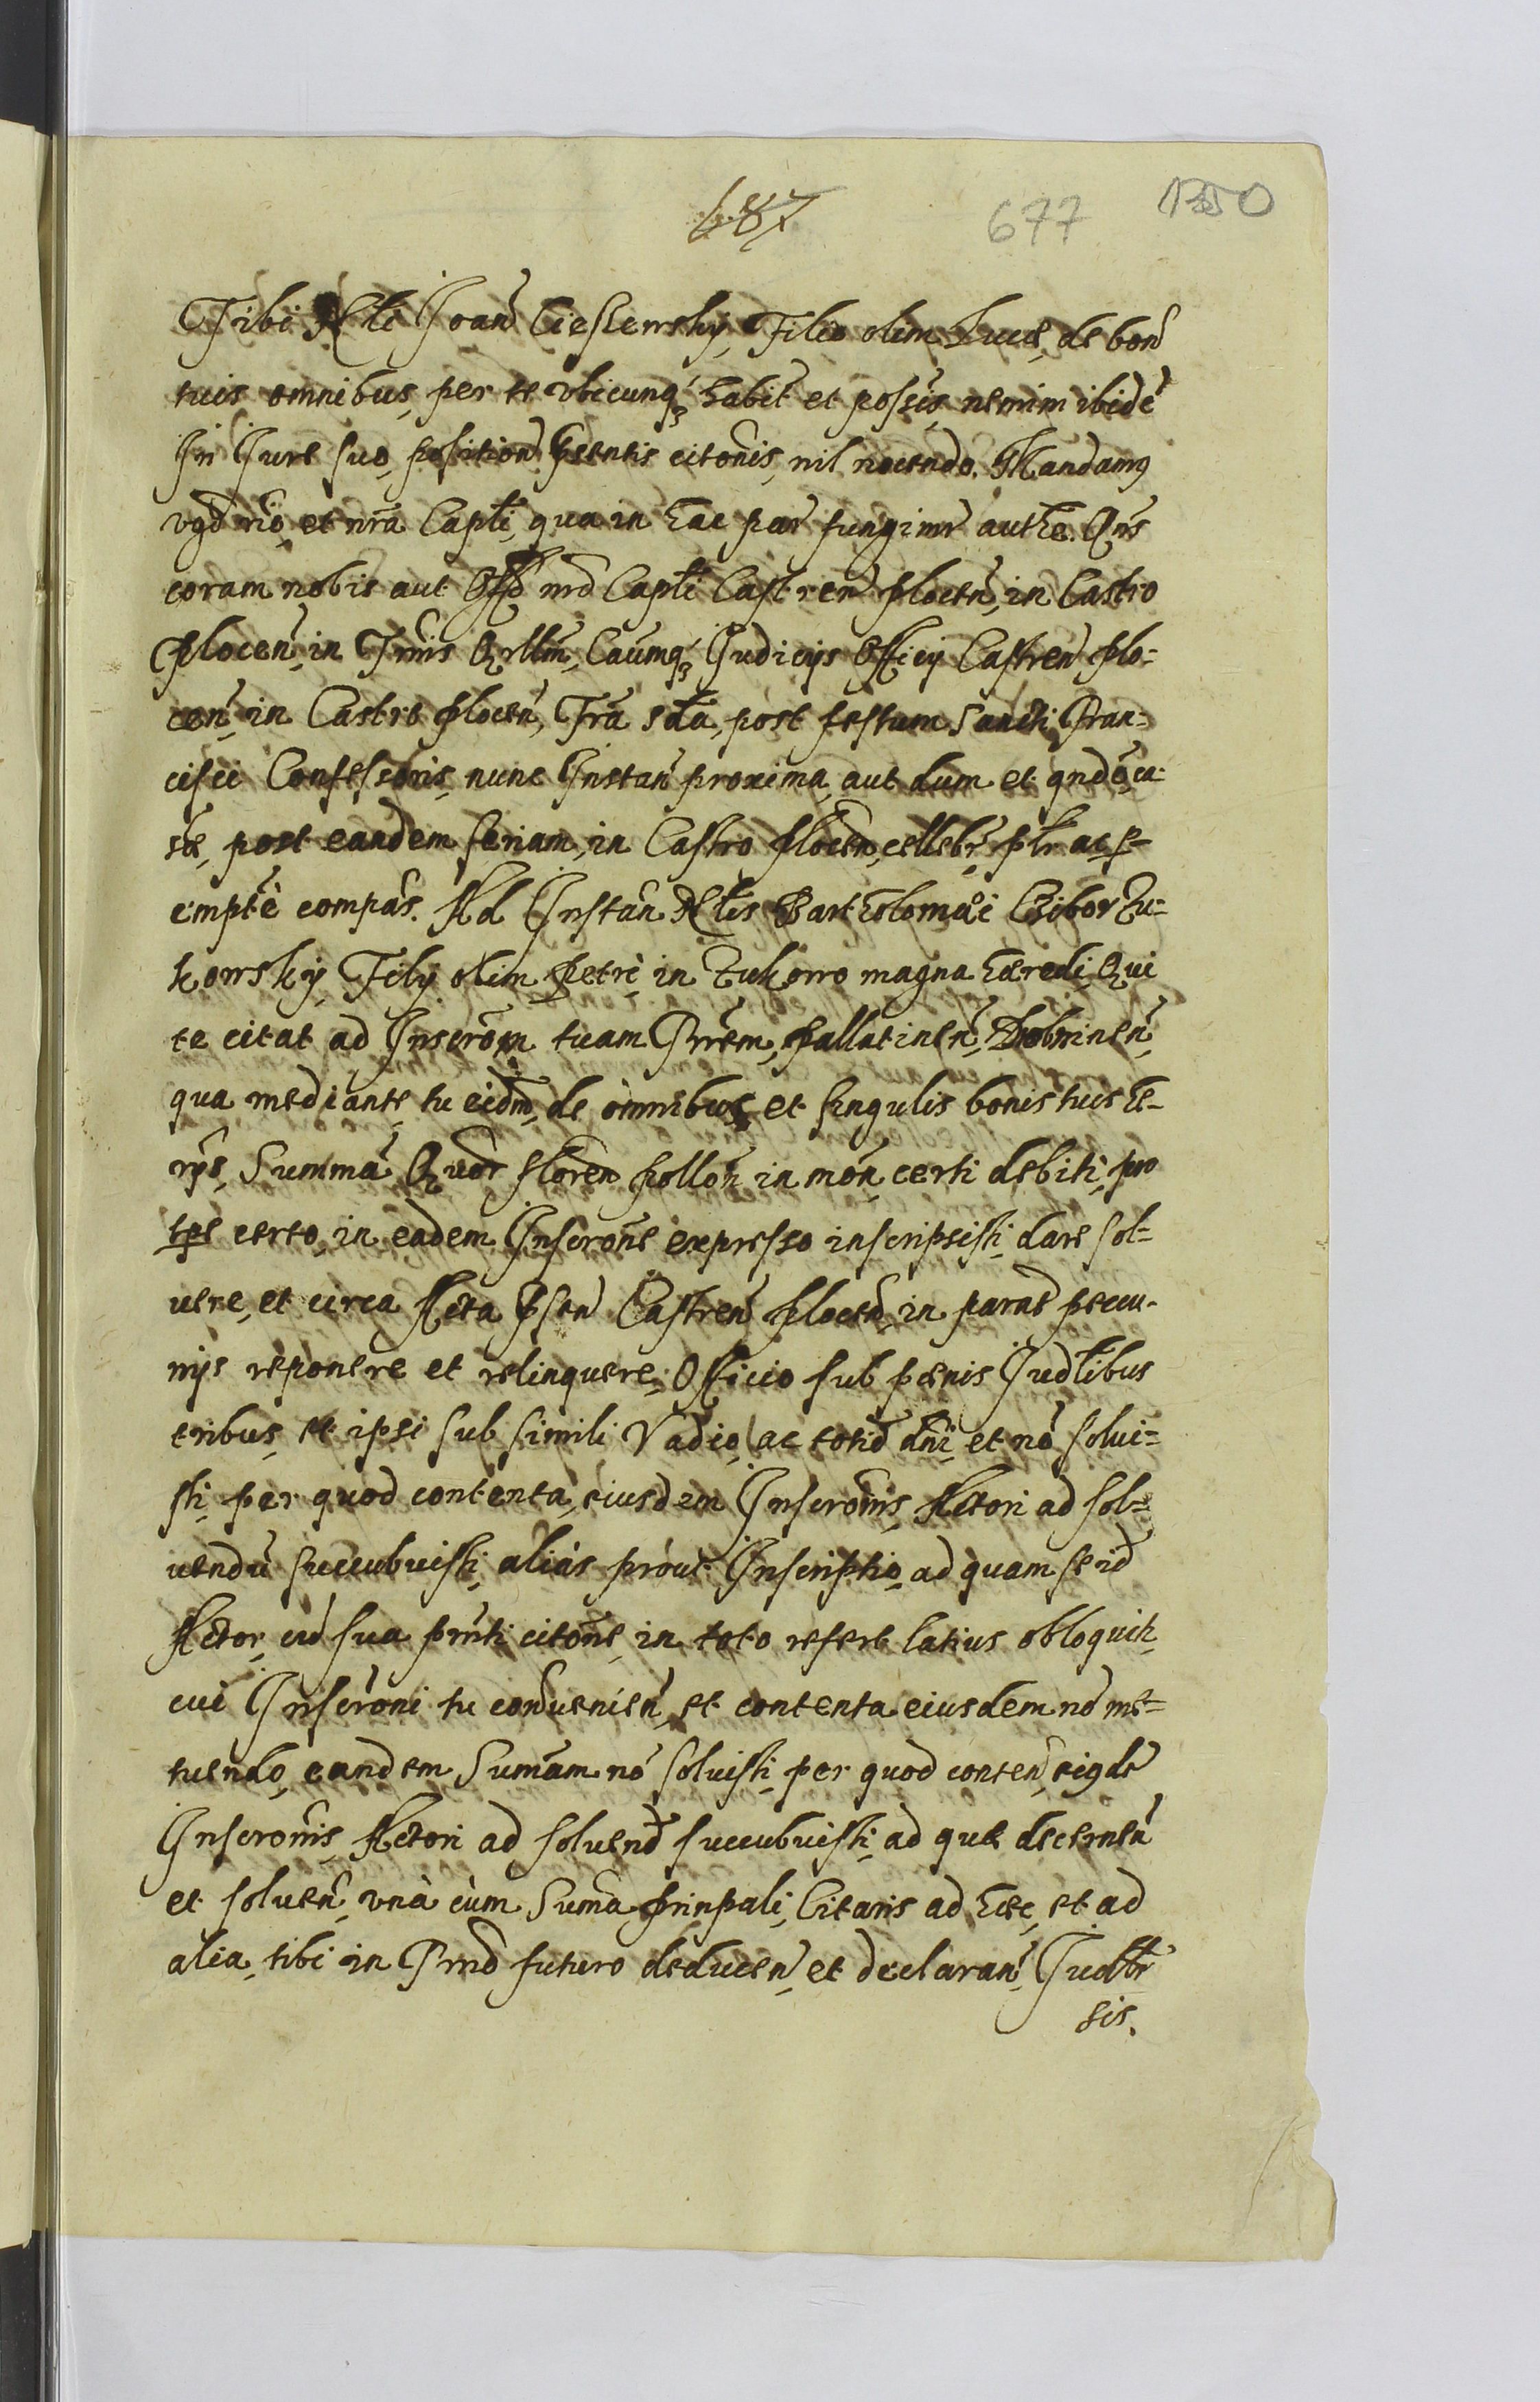 687
677
1350
Tibi Nłi Joañ Cieslewsky, Filio olim Lucæ, de boñ
tuis omnibus, per te vbicunq₃ habit̃ et possẽs, nemini ibidẽ
In Jure suo, position pñsentis citõnis, nil nocendo. Mandamꝰ
et nr̃a Capłi, qua in hac par fungimr authẽ. Qr̃s
coram nobis aut Offõ nr̃o Capłi Castreñ Ploceñ, in Castro
Ploceñ, in Tm̃is Qr̃llm̃, Caũmq₃ Judicijs Officij Castreñ Plo-
ceñ, in Castro Ploceñ, Fr̃a 2da, post festum Sancti Fran-
cisci Confessoris, nunc Instañ proxima, aut dum et qñdõ ca-
sæ, post eandem feriam, in Castro Ploceñ, cellebr, płr ac p-
emptẽ compãs. Ad Instañ Nłis Bartholomæi Czibor Zu-
kowsky, Filij olim Petri, in Zukowo magna Hæredi, Qui
te citat ad Inscrõm tuam Pr̃em, Pallatineñ, Dobrineñ,
qua mediante, tu eidm̃, de omnibus et singulis bonis tuis hæ-
rijs, Summã Quor floreñ Polloñ in moñ, certi debiti, pro
tpe certo, in eadem Inscrõne expresso inscripsisti, dare sol-
uere, et circa Acta Pñseñ Castreñ Ploceñ, in parat pecu-
nijs reponere et relinquere, Officio sub pænis Judłibus
tribus, et ipsi sub simili Vadio, ac totid dñi, et nõ solui-
sti, per quod contenta, eiusdem Inscrõnis, Actori ad sol-
uendũ succubuisti, alias prout Inscriptio, ad quam se id
Actor, cũ sua pñti citõne, in toto refert latius obloquitr,
cui Inscrõni tu conueñieñ, et contenta eiusdem nõ me-
tuendo, eandem Summam nõ soluisti, per quod conteñ, eiꝰdẽ
Inscrõnis, Actori ad soluend succubuisti, ad quæ decerneñ
et solueñ, vnà cum Suma prinpali, Citaris ad hæc, et ad
alia, tibi in Tmo futuro deduceñ, et declarañ, Judłr
sis.